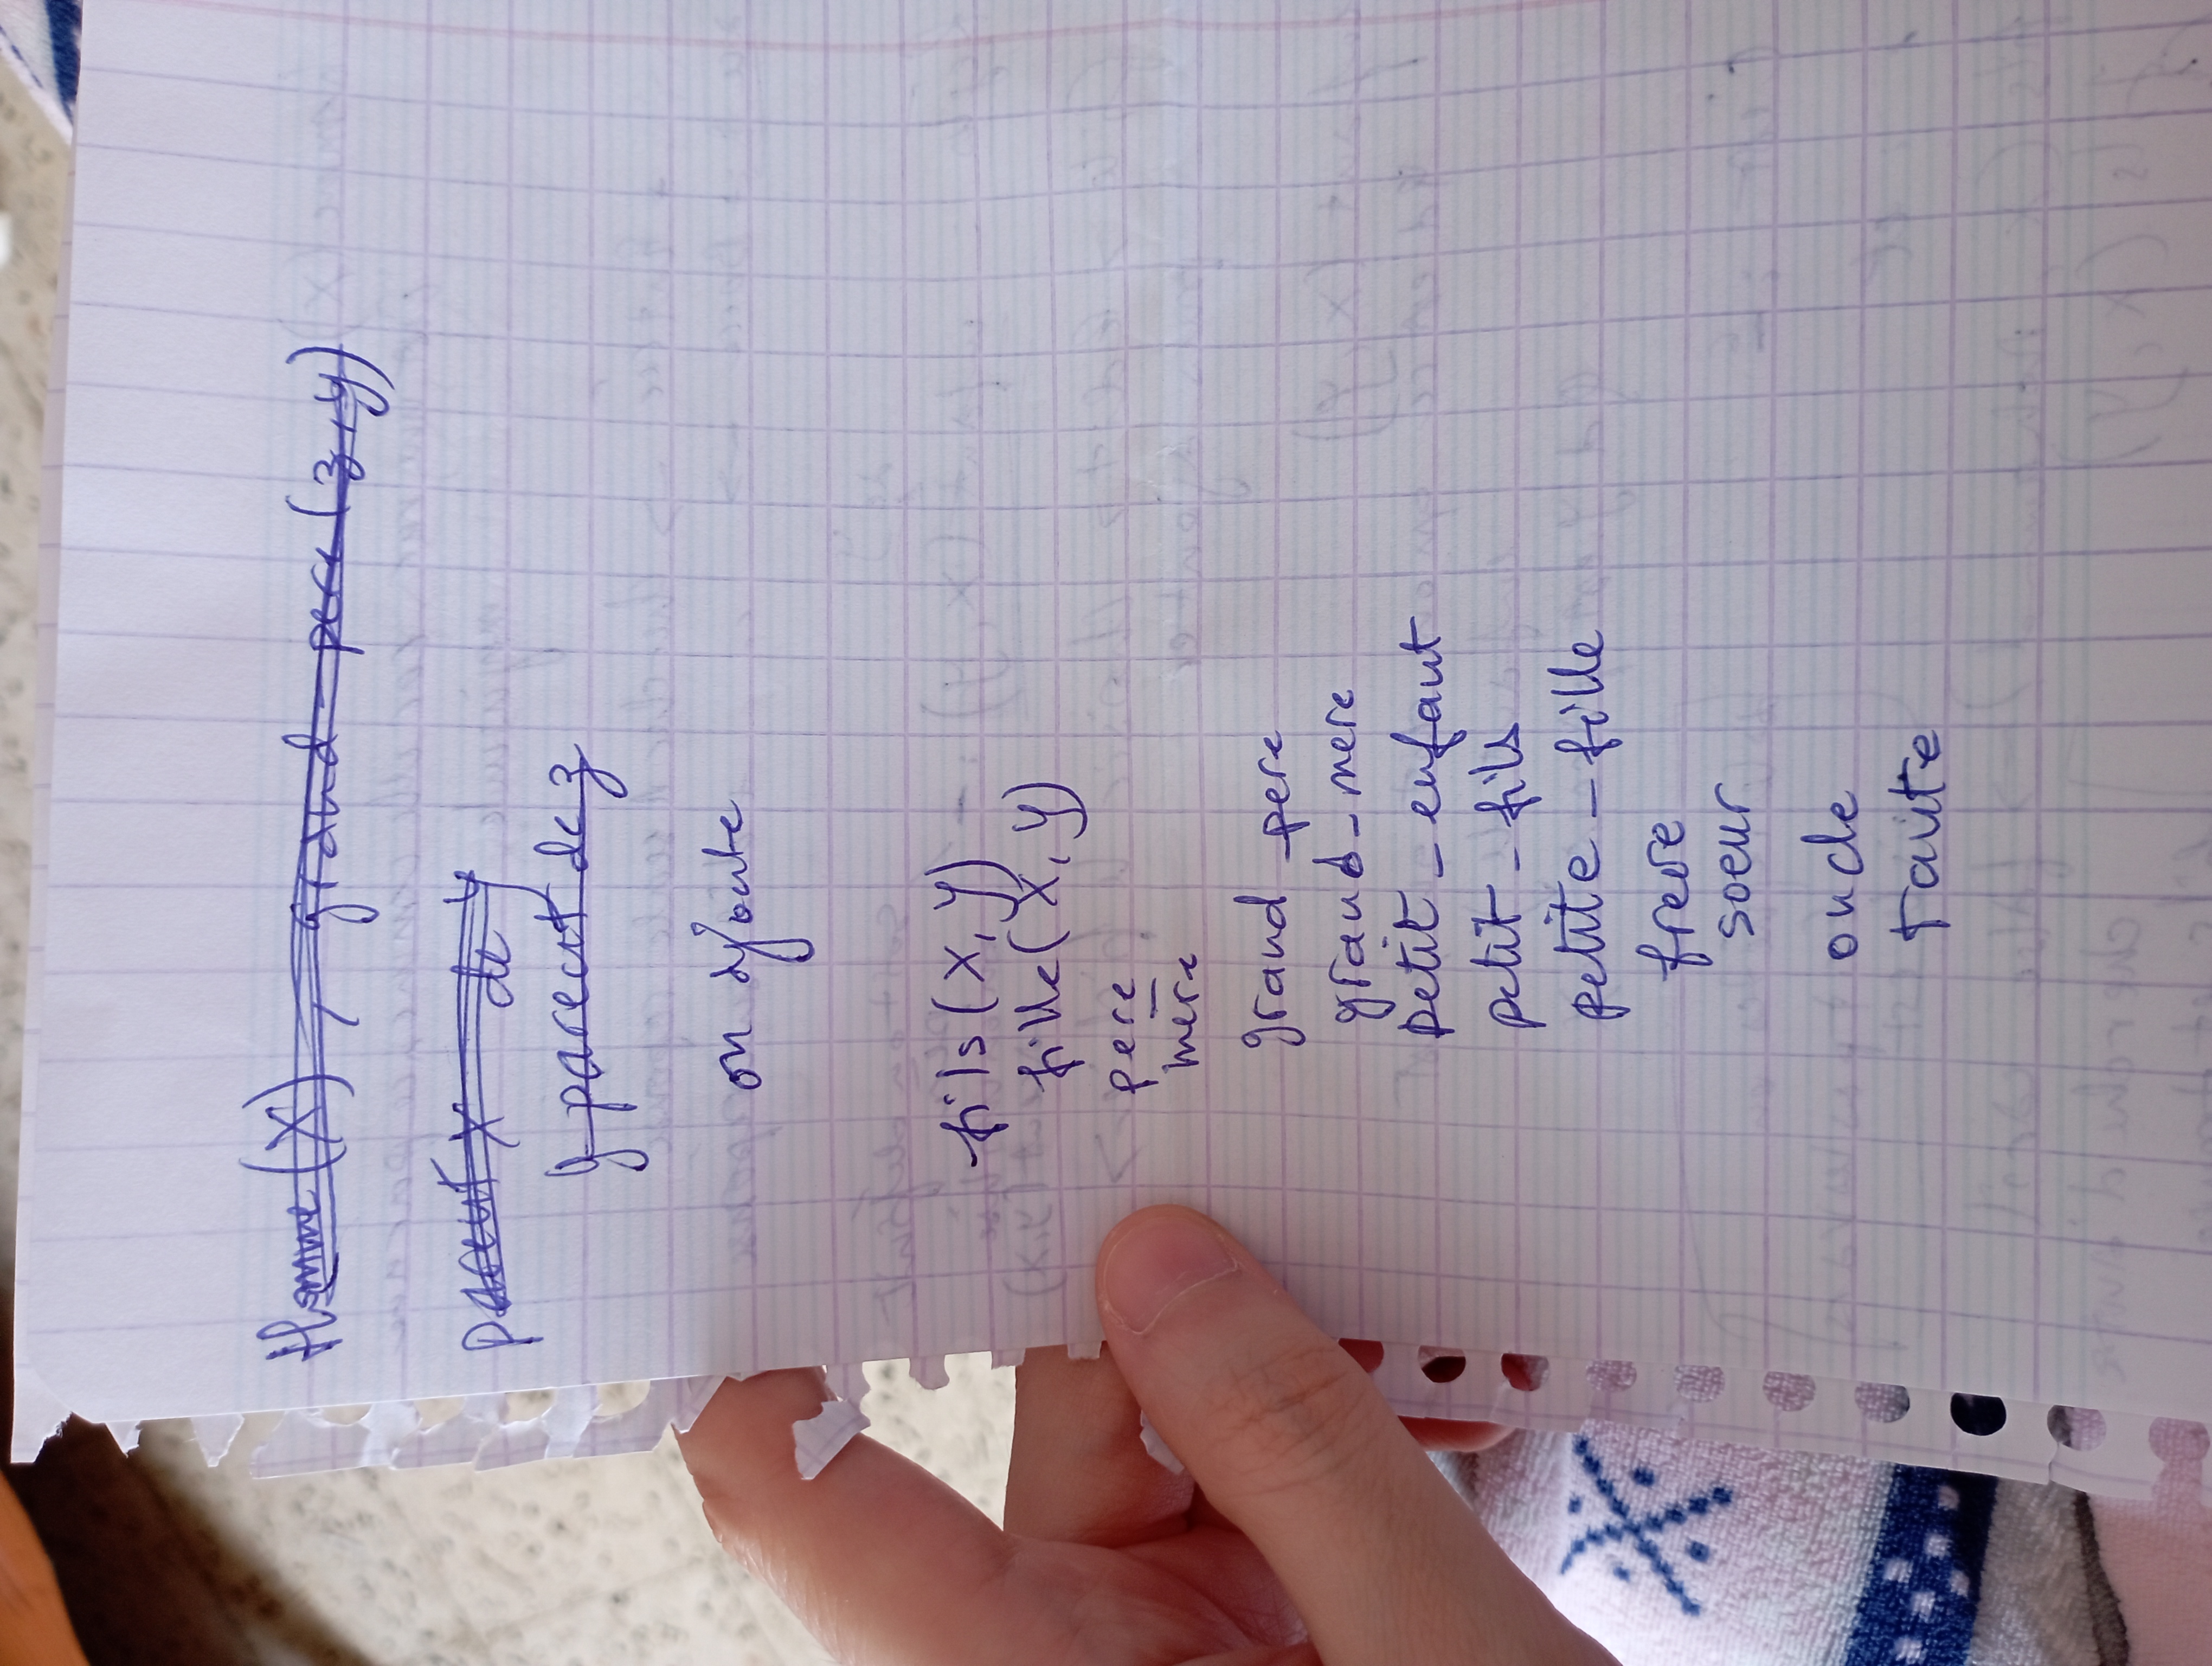 Homme (X), grand-pere (z, y)
parent X de y
y parent de z
on ajoute
fils (X, y)
fille (X, y)
pere
mere
grand_pere
grand_mere
petit_enfant
petit_fils
petite_fille
frere
soeur
oncle
tante